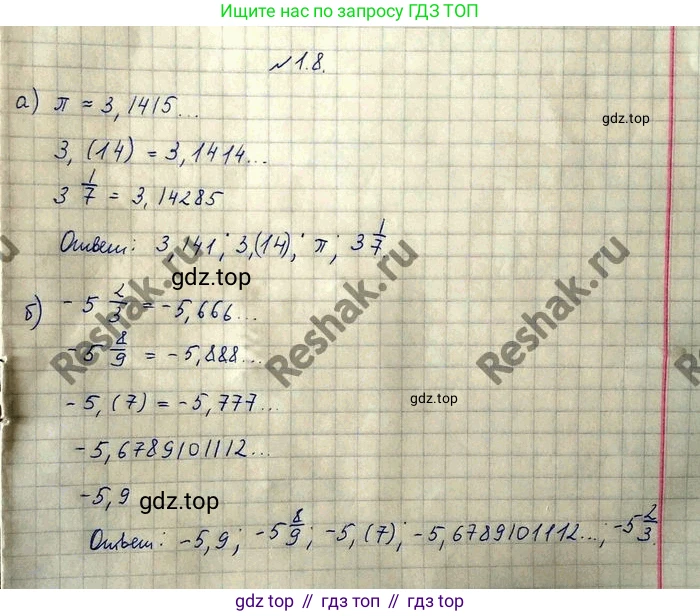 Ищите нас по запросу ГДЗ ТОП
№1.8.
а) π ≈ 3,1415...
gdz.top
3,(14) = 3,1414...
3 1/7 = 3,14285
Ответ: 3,141; 3,(14); π; 3 1/7.
gdz.top
б) -5 2/3 = -5,666...
-5 8/9 = -5,888...
-5,(7) = -5,777...
gdz.top
-5,6789101112...
-5,9
gdz.top
Ответ: -5,9; -5 8/9; -5,(7); -5,6789101112...; -5 2/3.
Reshak.ru
Reshak.ru
Reshak.ru
gdz.top // гдз топ // gdz.top